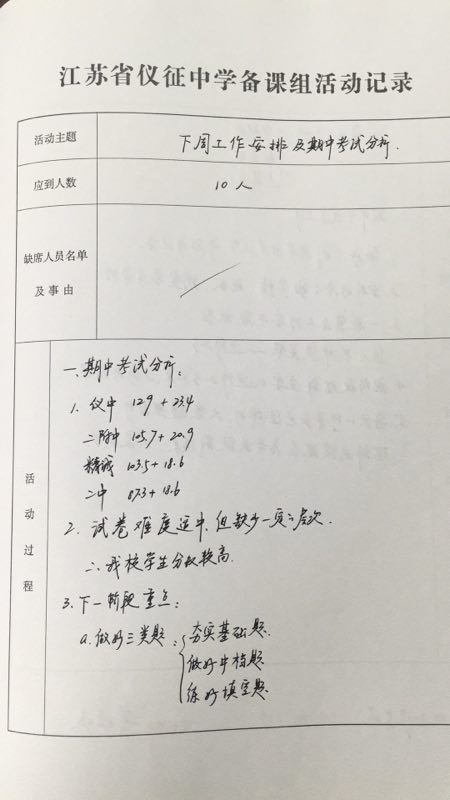 江苏省仪征中学备课组活动记录
活动主题
下周工作安排及期中考试分析.
应到人数
10人
缺席人员名单
及事由
活动过程
一.期中考试分析:
1. 仪中 129 + 23.4
二附中 105.7 + 20.9
精诚 103.5 + 18.6
二中 87.3 + 18.6
2. 试卷难度适中,但缺少一定层次.
∴我校学生分数较高.
3. 下一阶段重点:
a. 做好三类题:
夯实基础题.
做好中档题
练好填空题.